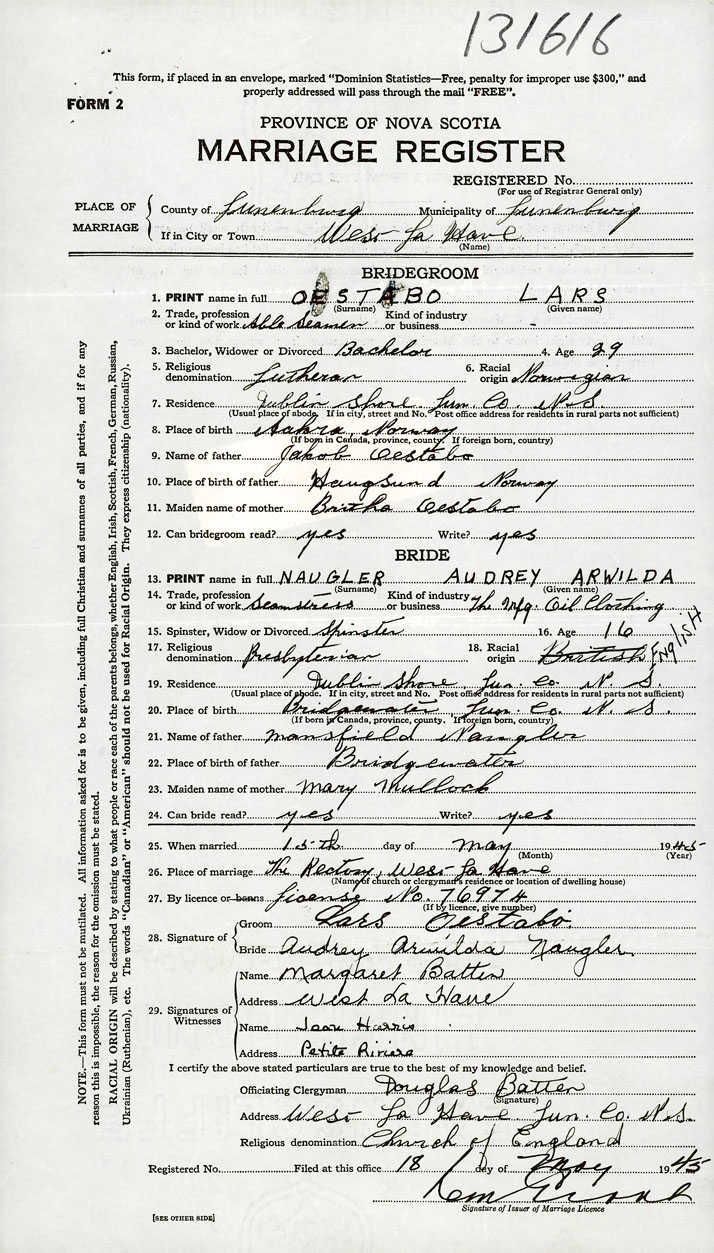 131616
This form, if placed in an envelope, marked "Dominion Statistics—Free, penalty for improper use $300," and
properly addressed will pass through the mail "FREE".
FORM 2
PROVINCE OF NOVA SCOTIA
MARRIAGE REGISTER
REGISTERED No.
(For use of Registrar General only)
PLACE OF MARRIAGE
County of Lunenburg Municipality of Lunenburg
If in City or Town West La Have
(Name)
BRIDEGROOM
1. PRINT name in full OESTABO LARS
(Surname) (Given name)
2. Trade, profession or kind of work Able Seamen Kind of industry or business -
3. Bachelor, Widower or Divorced Bachelor 4. Age 29
5. Religious denomination Lutheran 6. Racial origin Norwegian
7. Residence Dublin Shore Lun. Co. N.S.
(Usual place of abode. If in city, street and No. Post office address for residents in rural parts not sufficient)
8. Place of birth Norway
(If born in Canada, province, county. If foreign born, country)
9. Name of father Jakob Oestabo
10. Place of birth of father Haugsund Norway
11. Maiden name of mother Britha Oestabo
12. Can bridegroom read? yes Write? yes
BRIDE
13. PRINT name in full NAUGLER AUDREY ARWILDA
(Surname) (Given name)
14. Trade, profession or kind of work Seamstress Kind of industry or business The Mfg. Oil Clothing
15. Spinster, Widow or Divorced Spinster 16. Age 16
17. Religious denomination Presbyterian 18. Racial origin British ENGLISH
19. Residence Dublin Shore Lun. Co. N. S.
(Usual place of abode. If in city, street and No. Post office address for residents in rural parts not sufficient)
20. Place of birth Bridgewater Lun. Co. N. S.
(If born in Canada, province, county. If foreign born, country)
21. Name of father Mansfield Naugler
22. Place of birth of father Bridgewater
23. Maiden name of mother Mary Mullock
24. Can bride read? yes Write? yes
25. When married 15th day of May 1945
(Month) (Year)
26. Place of marriage The Rectory, West La Have
(Name of church or clergyman's residence or location of dwelling house)
27. By licence or banns License No. 76974
(If by licence, give number)
28. Signature of
Groom Lars Oestabo.
Bride Audrey Arwilda Naugler
29. Signatures of Witnesses
Name Margaret Batten
Address West La Have
Name Joan Harris
Address Petite Riviere
I certify the above stated particulars are true to the best of my knowledge and belief.
Officiating Clergyman Douglas Batten
(Signature)
Address West La Have Lun. Co. N.S.
Religious denomination Church of England
Registered No. Filed at this office 18 day of May 1945
Signature of Issuer of Marriage Licence
[SEE OTHER SIDE]
NOTE.—This form must not be mutilated. All information asked for is to be given, including full Christian and surnames of all parties, and if for any
reason this is impossible, the reason for the omission must be stated.
RACIAL ORIGIN will be described by stating to what people or race each of the parents belongs, whether English, Irish, Scottish, French, German, Russian,
Ukrainian (Ruthenian), etc. The words "Canadian" or "American" should not be used for Racial Origin. They express citizenship (nationality).